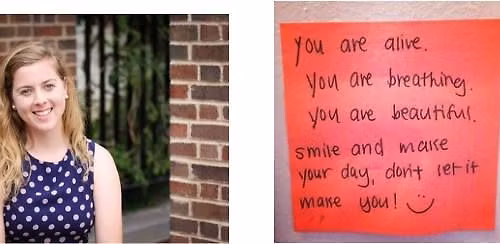 you are alive.
You are breathing.
you are beautiful.
smile and make
your day, don't let it
make you! :)